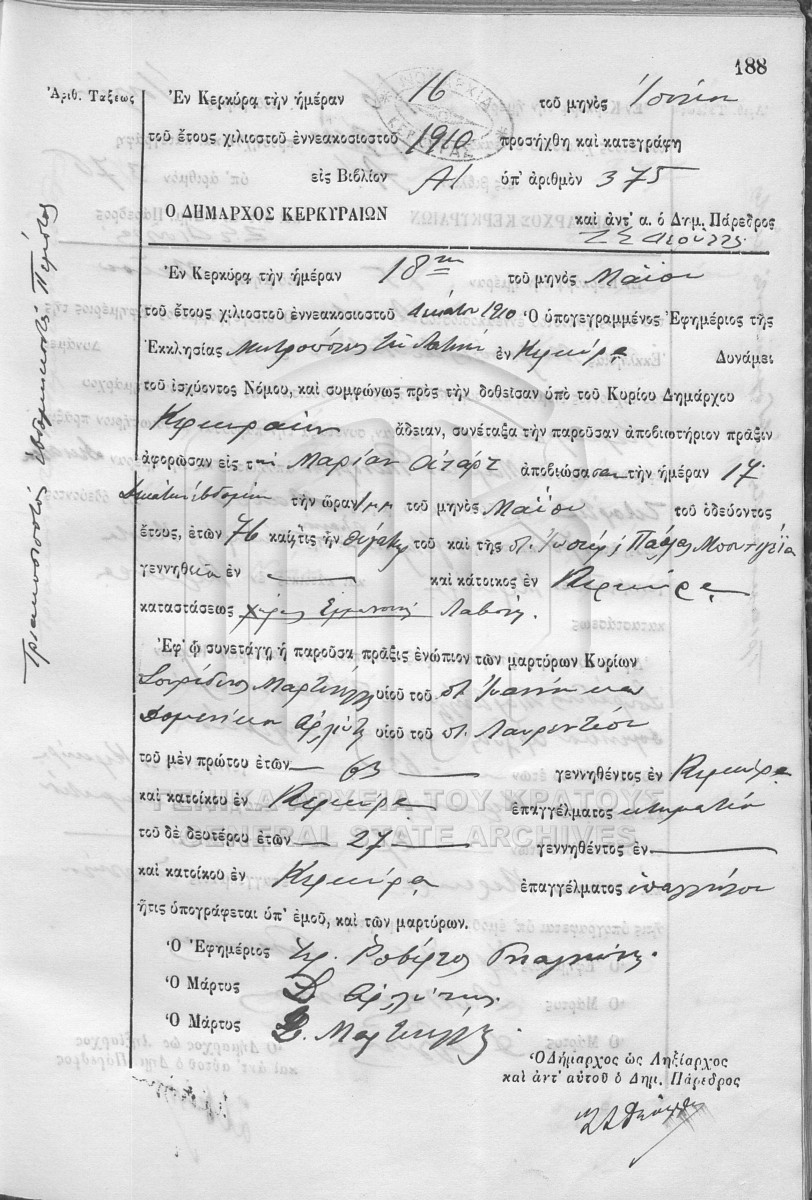 188
Ἀριθ. Τάξεως
Ἐν Κερκύρᾳ τὴν ἡμέραν 16 τοῦ μηνὸς Ἰουνίου
τοῦ ἔτους χιλιοστοῦ ἐννεακοσιοστοῦ 1910 προσήχθη καὶ κατεγράφη
εἰς Βιβλίον Α1 ὑπ' ἀριθμὸν 375
Ο ΔΗΜΑΡΧΟΣ ΚΕΡΚΥΡΑΙΩΝ
καὶ ἀντ' α. ὁ Δημ. Πάρεδρος
ΝΟΜΑΡΧΙΑ ΚΕΡΚΥΡΑΣ
Τριακοσιοστὸς ἑβδομηκοστὸς Πέμπτος
Ἐν Κερκύρᾳ τὴν ἡμέραν 18ην τοῦ μηνὸς Μαΐου
τοῦ ἔτους χιλιοστοῦ ἐννεακοσιοστοῦ δεκάτου 1910 Ὁ ὑπογεγραμμένος Ἐφημέριος τῆς
Ἐκκλησίας Μητροπόλεως τῶν Λατίνων ἐν Κερκύρᾳ Δυνάμει
τοῦ ἰσχύοντος Νόμου, καὶ συμφώνως πρὸς τὴν δοθεῖσαν ὑπὸ τοῦ Κυρίου Δημάρχου
Κερκυραίων ἄδειαν, συνέταξα τὴν παροῦσαν ἀποβιωτήριον πρᾶξιν
ἀφορῶσαν εἰς τὴν Μαρίαν ἀποβιώσασαν τὴν ἡμέραν 17
Δεκάτην ἑβδόμην τὴν ὥραν 1 μμ τοῦ μηνὸς Μαΐου τοῦ ὁδεύοντος
ἔτους, ἐτῶν 76 καὶ ἥτις ἦν θυγάτηρ τοῦ καὶ τῆς ποτ. Ἰωσὴφ
γεννηθεῖσα ἐν — καὶ κάτοικος ἐν Κερκύρᾳ
καταστάσεως χήρας
Ἐφ' ᾧ συνετάγη ἡ παροῦσα πρᾶξις ἐνώπιον τῶν μαρτύρων Κυρίων
Σπυρίδωνος υἱοῦ τοῦ ποτ. Ἰωάννου καὶ
Δομενίκου υἱοῦ τοῦ ποτ. Λαυρεντίου
τοῦ μὲν πρώτου ἐτῶν — 63 — γεννηθέντος ἐν Κερκύρᾳ
καὶ κατοίκου ἐν Κερκύρᾳ ἐπαγγέλματος κτηματίου
τοῦ δὲ δευτέρου ἐτῶν — 27 — γεννηθέντος ἐν —
καὶ κατοίκου ἐν Κερκύρᾳ ἐπαγγέλματος ὑπαλλήλου
ἥτις ὑπογράφεται ὑπ' ἐμοῦ, καὶ τῶν μαρτύρων.
Ὁ Ἐφημέριος Ροβέρτος
Ὁ Μάρτυς Δ.
Ὁ Μάρτυς Σ.
Ὁ Δήμαρχος ὡς Ληξίαρχος
καὶ ἀντ' αὐτοῦ ὁ Δημ. Πάρεδρος
ΓΕΝΙΚΑ ΑΡΧΕΙΑ ΤΟΥ ΚΡΑΤΟΥΣ
GENERAL STATE ARCHIVES